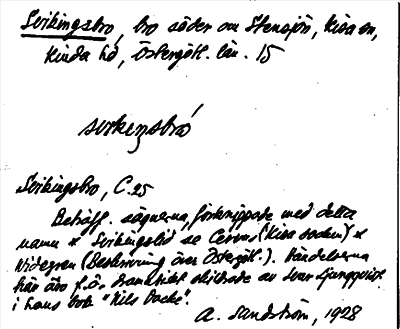 Svikingsbro, bro söder om Stensjön, Kisa sn,
Kinda hd, Östergötl. län. 15
svikeŋsbró
Svikingsbro, C. 25
Beträff. sägnerna, förknippade med detta
namn x Svikingslid se Cervus (Kisa socken) x
Widegren (Beskrivning över Östergötl.). Händelserna
här äro f.ö. dramatiskt skildrade av Ivar Ljungquist
i hans bok "Nils Dacke".
A. Sandström, 1928